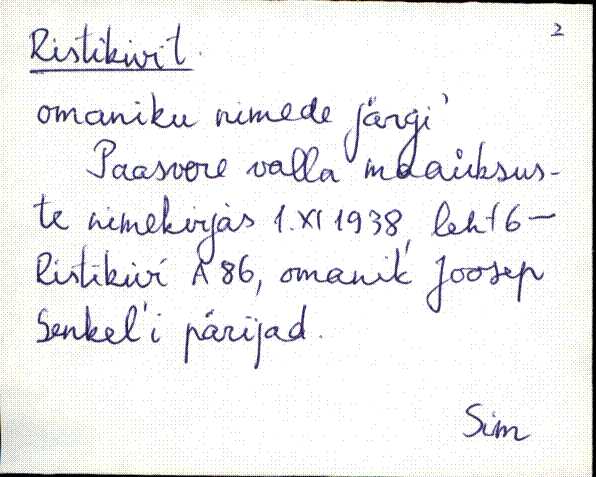 2
Ristikivi t.
omaniku nimede järgi
Paasvere valla maaüksus-
te nimekirjas 1.XI 1938, leht 6 –
Ristikivi A 86, omanik Joosep
Senkel'i pärijad.
Sim